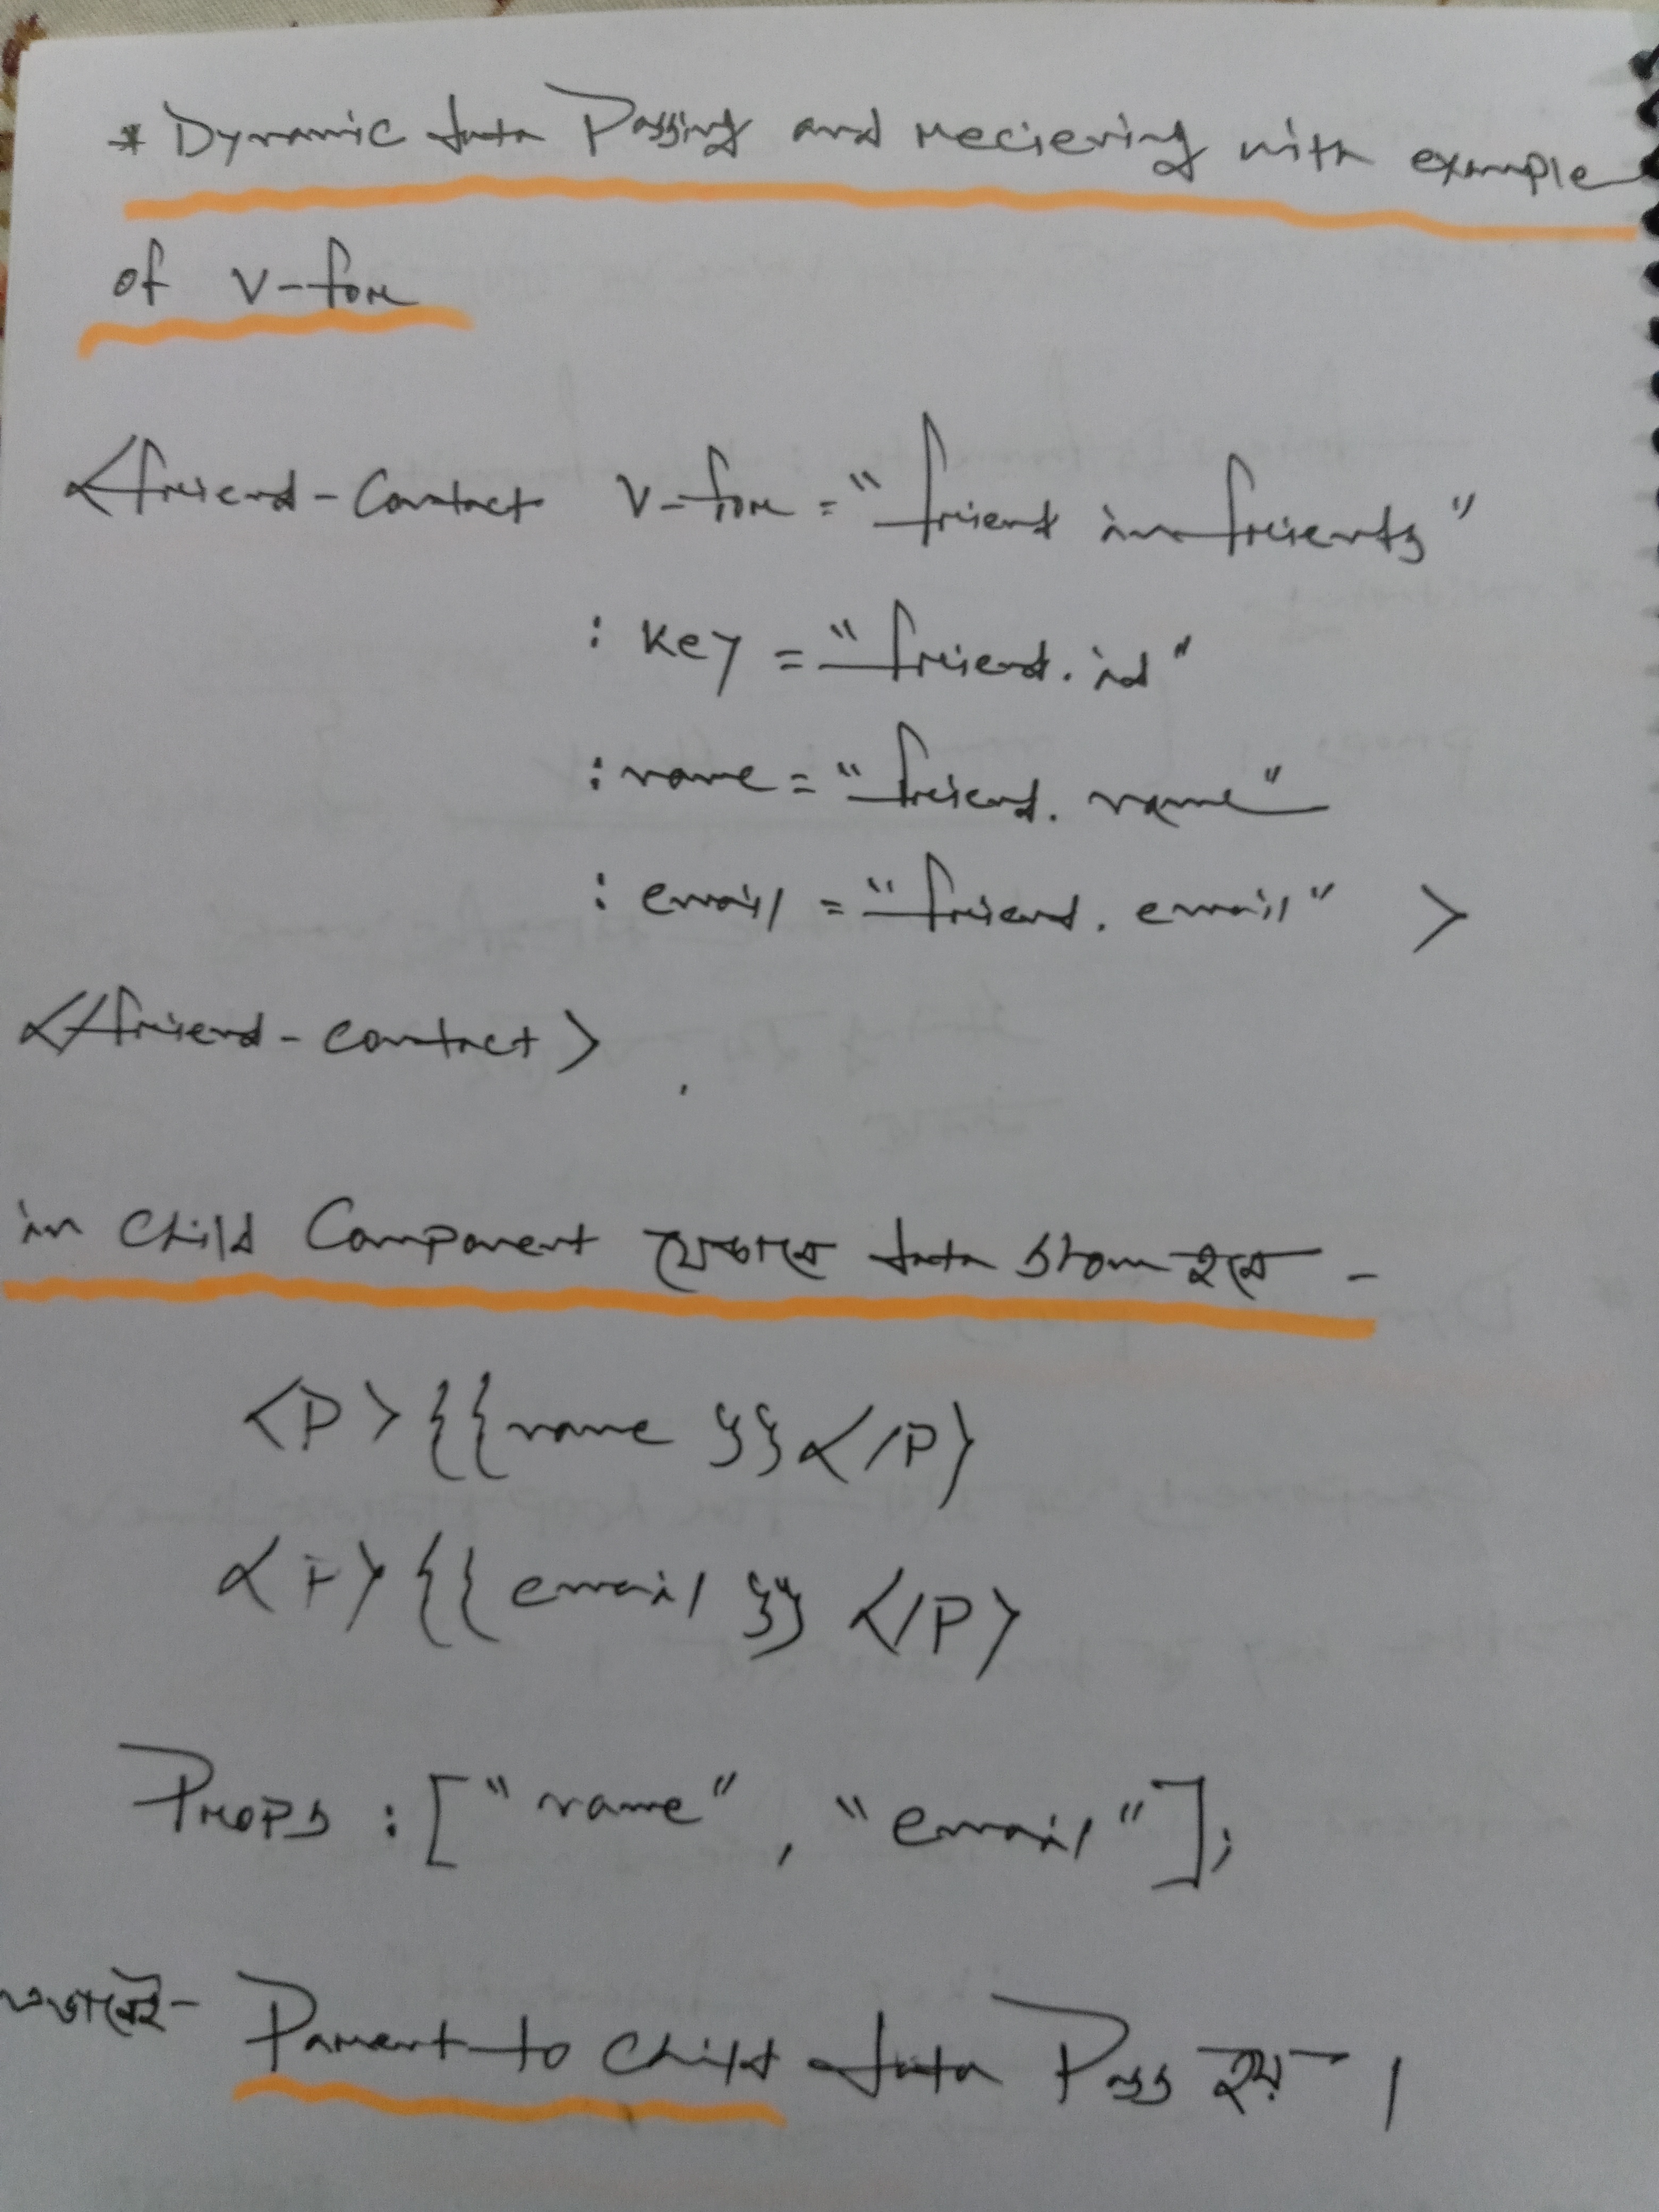 * Dynamic data Passing and recieving with example
of v-for
<friend-Contact v-for="friend in friends"
:key="friend.id"
:name="friend.name"
:email="friend.email" >
</friend-contact>
in Child Component যেভাবে data show হবে -
<P>{{name}}</P>
<P>{{email}} </P>
Props : ["name", "email"];
এভাবেই- Parent to child data Pass হয় ।